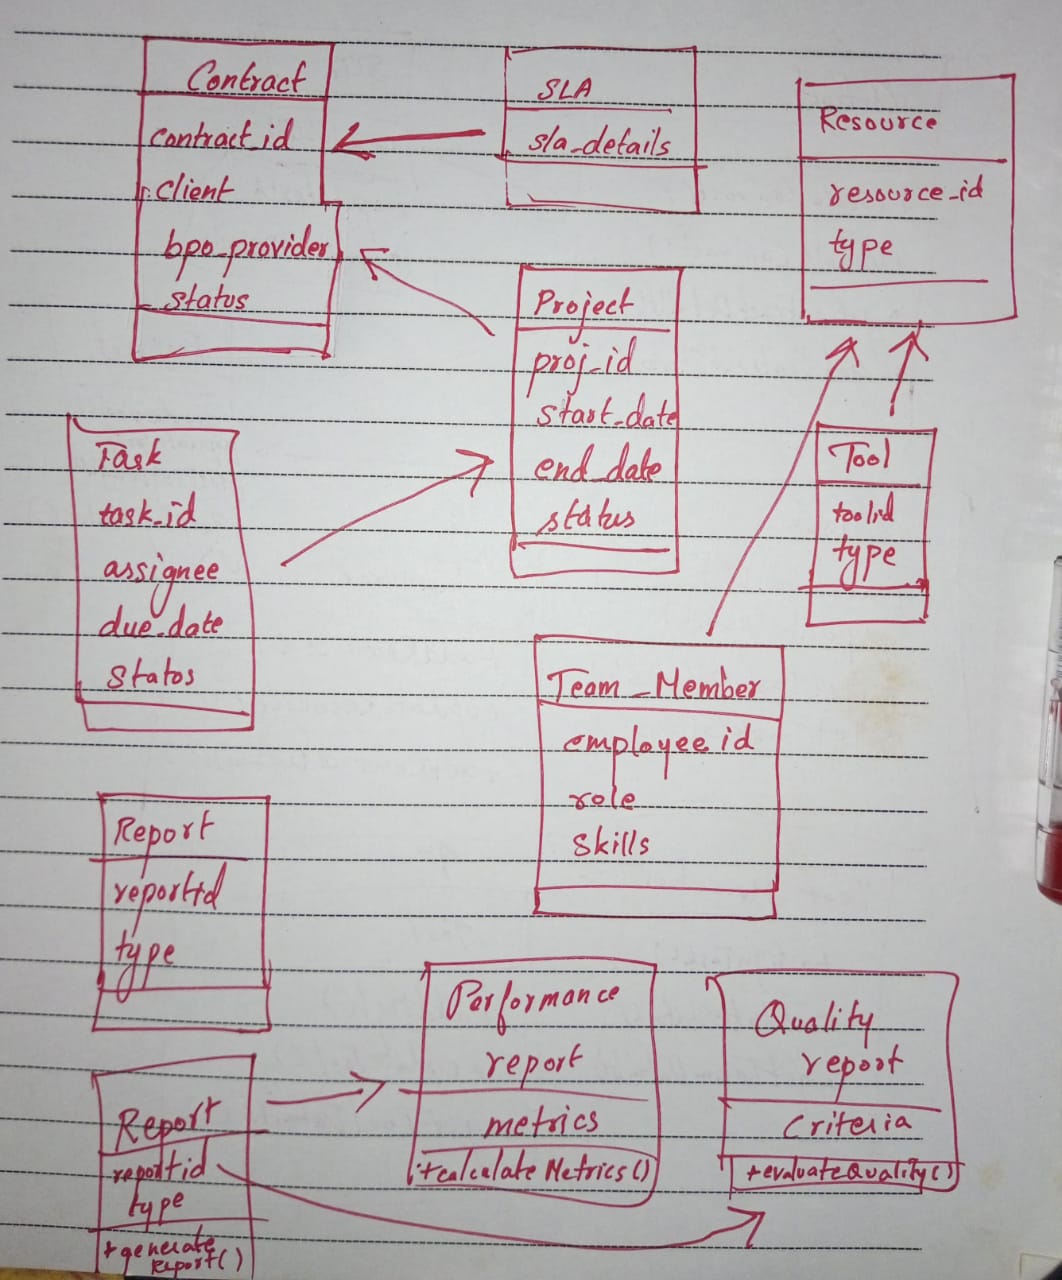 Contract
contract_id
client
bpo_provider
status
SLA
sla_details
Resource
resource_id
type
Project
proj_id
start_date
end_date
status
Task
task_id
assignee
due_date
status
Tool
toolid
type
Team_Member
employee id
role
skills
Report
reportid
type
Performance
report
metrics
+calculateMetrics()
Quality
report
criteria
+evaluateQuality()
Report
reportid
type
+generate
Report()